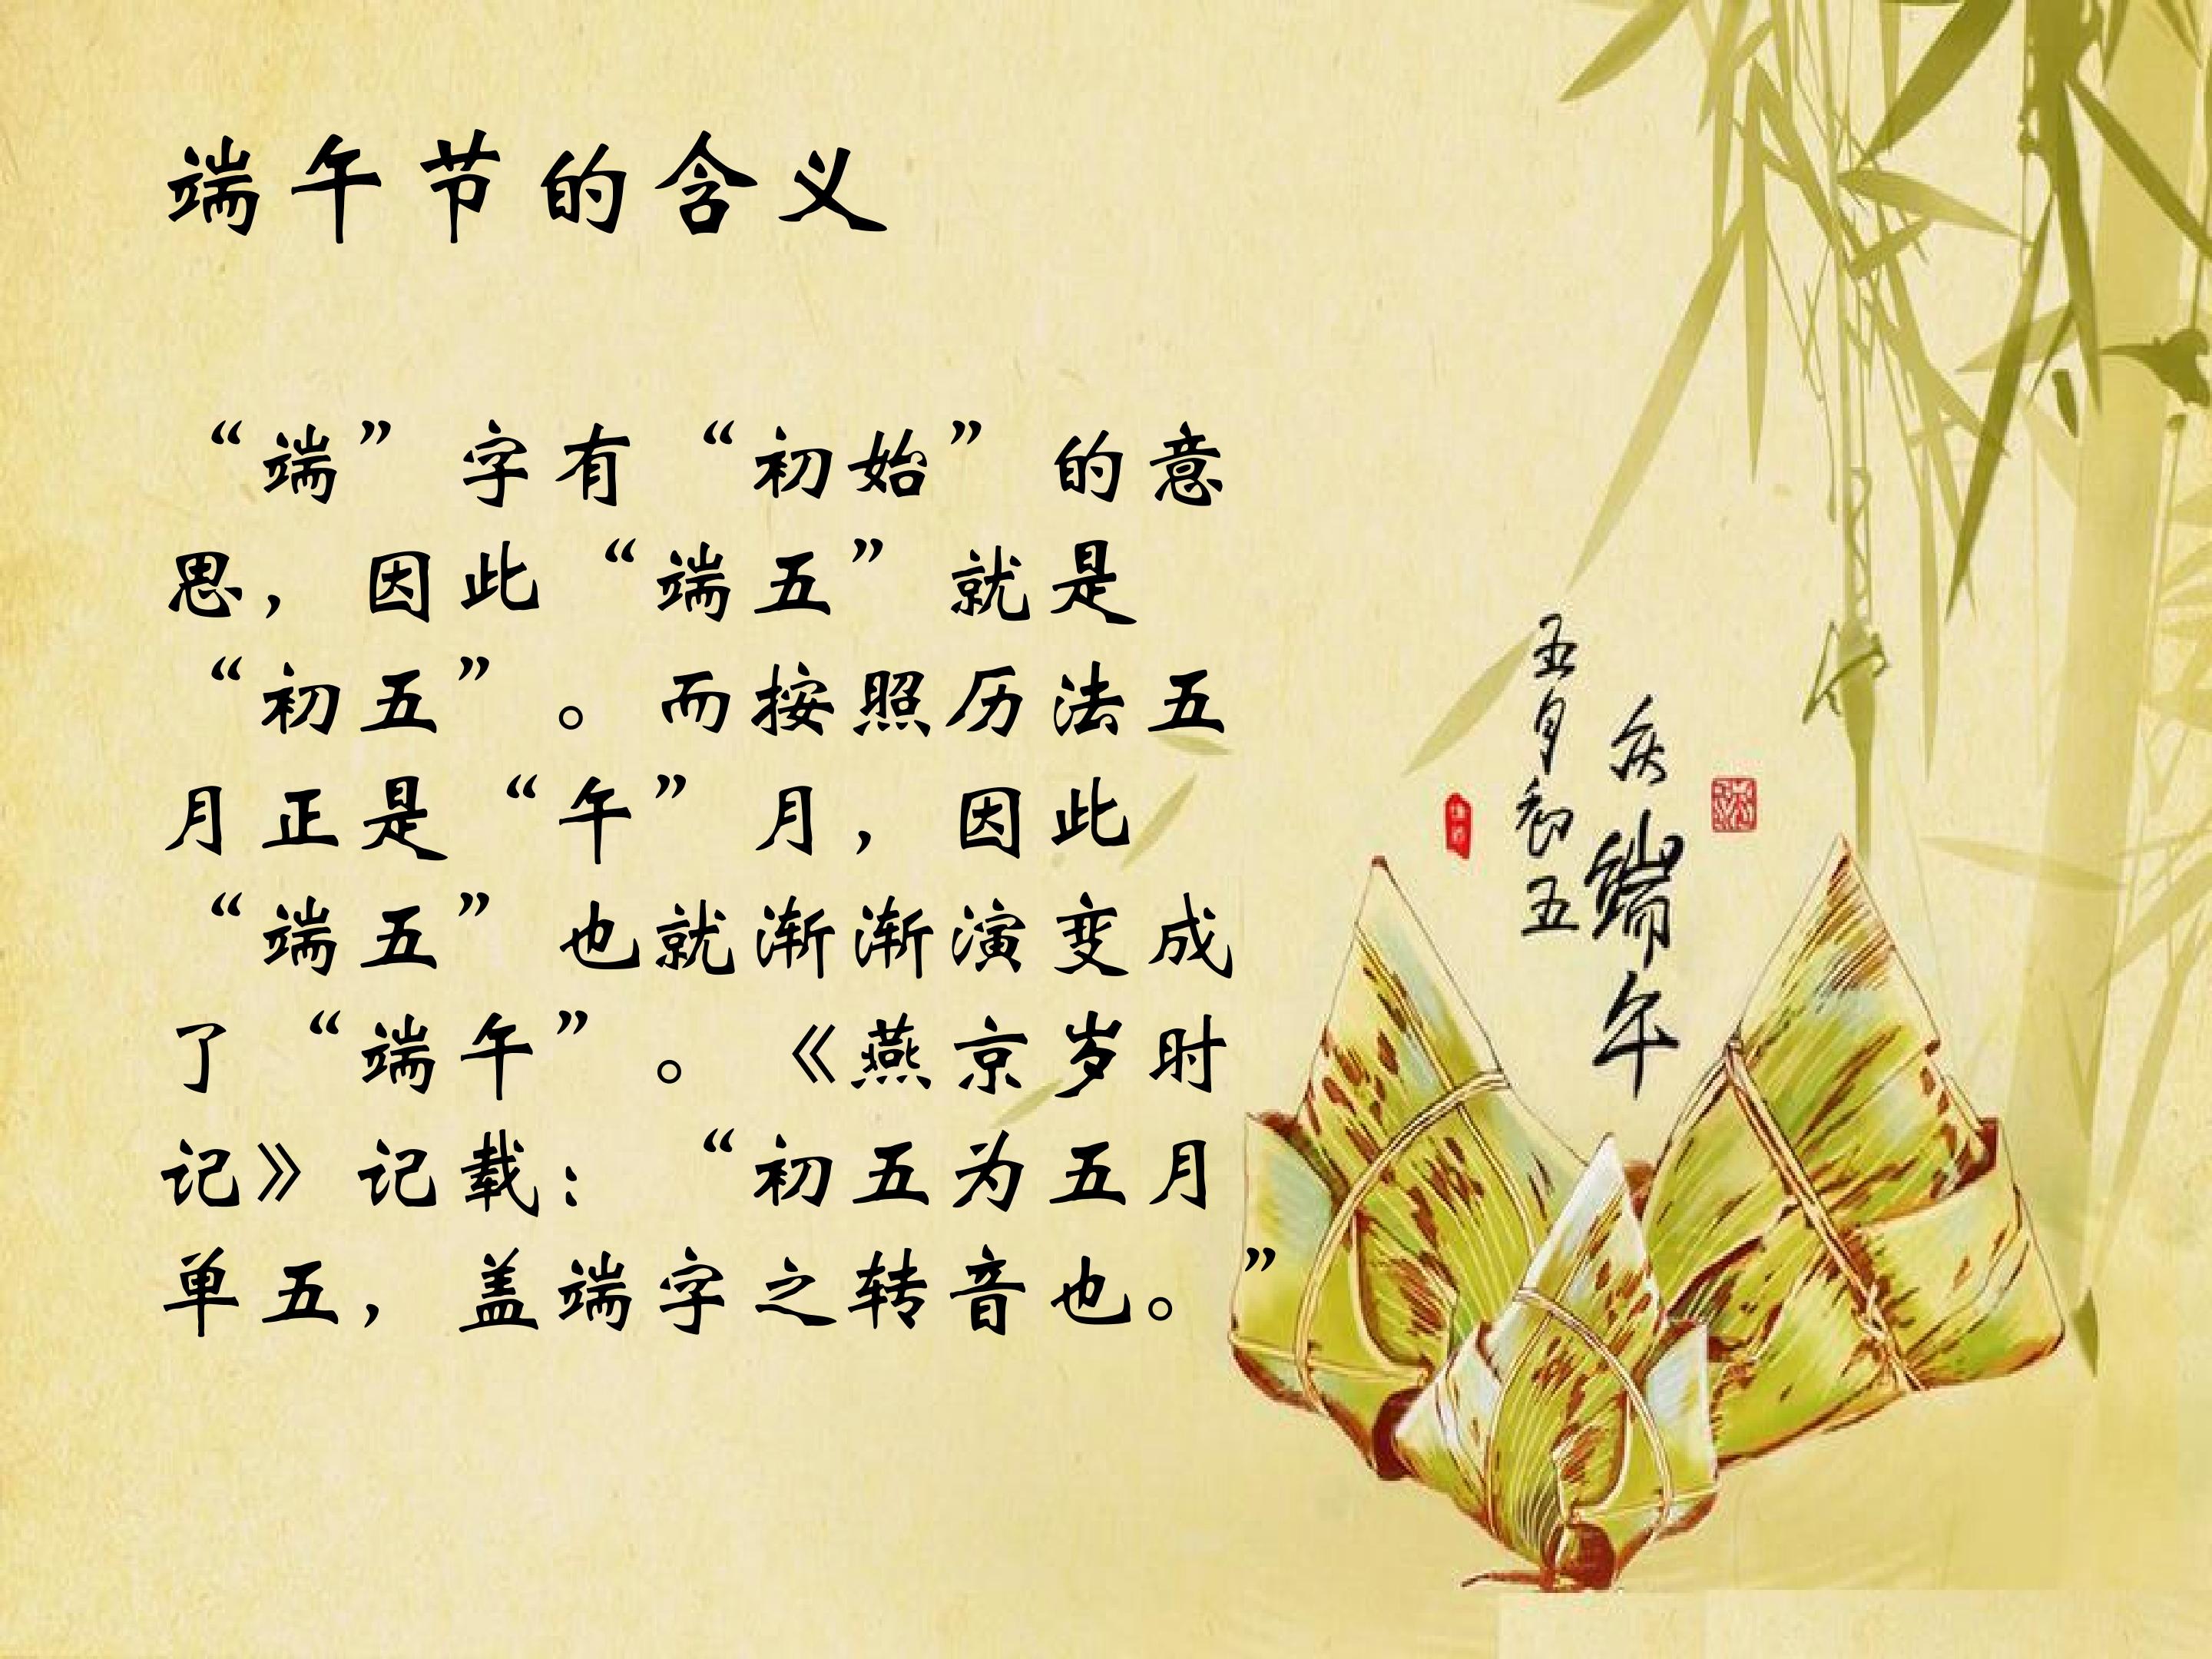 端午节的含义
“端”字有“初始”的意
思，因此“端五”就是
“初五”。而按照历法五
月正是“午”月，因此
“端五”也就渐渐演变成
了“端午”。《燕京岁时
记》记载：“初五为五月
单五，盖端字之转音也。”
庆端午
五月初五